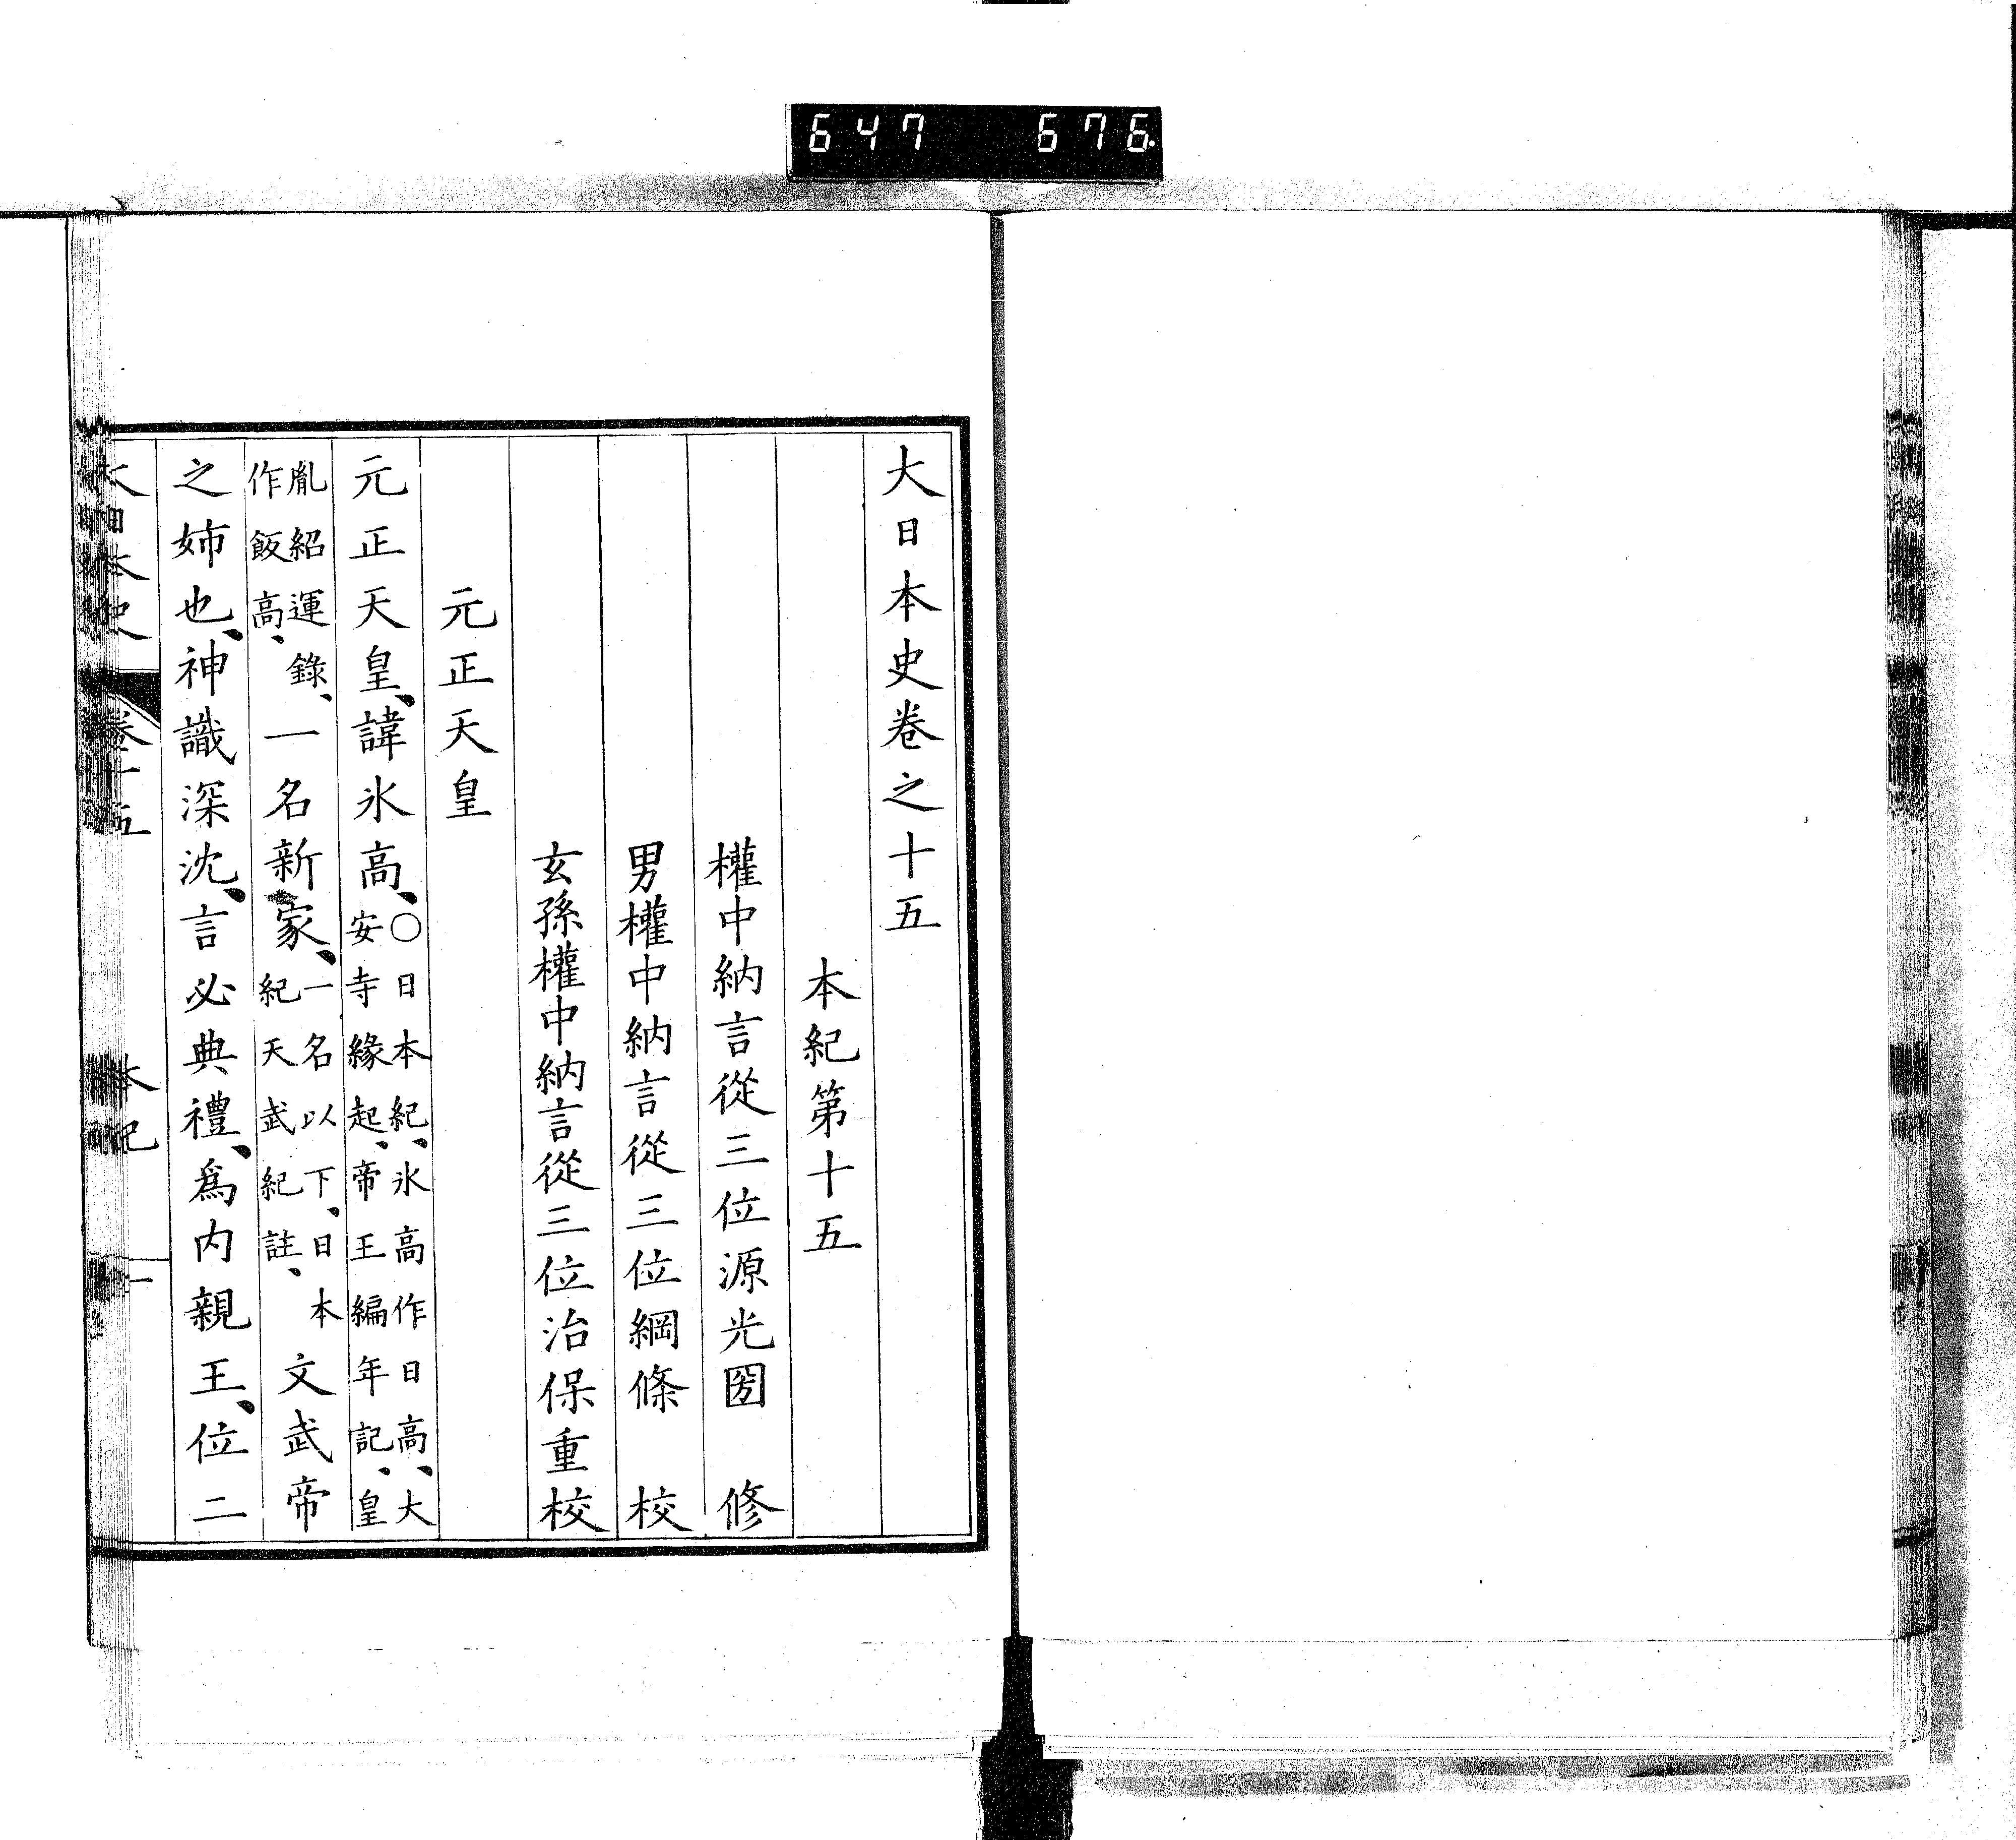 647 676.
大日本史卷之十五
本紀第十五
權中納言從三位源光圀 修
男權中納言從三位綱條 校
玄孫權中納言從三位治保重校
元正天皇
元正天皇、諱氷高、○日本紀、氷高作日高、大
安寺緣起、帝王編年記、皇
胤紹運錄、
作飯高、
一名新家、一名以下、日本
紀天武紀註、
文武帝
之姉也、神識深沈、言必典禮、爲内親王、位二
大日本史 卷十五 本紀 一